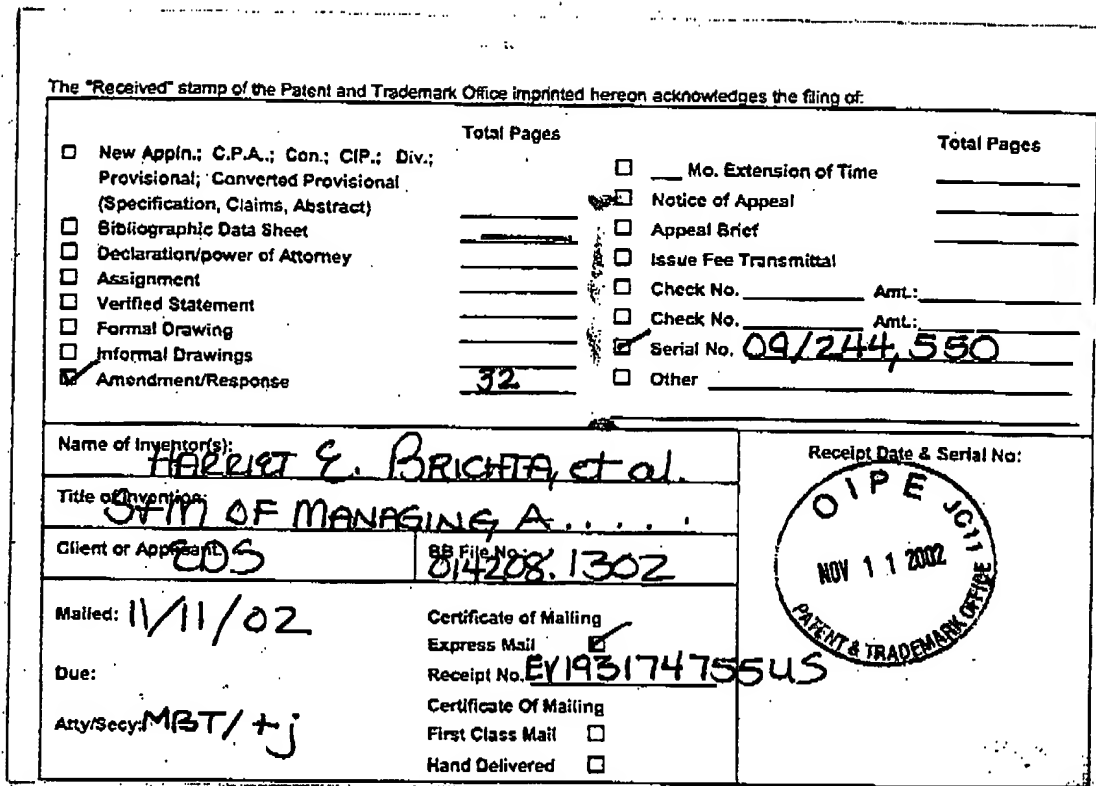 The "Received" stamp of the Patent and Trademark Office imprinted hereon acknowledges the filing of:
Total Pages
☐ New Appln.; C.P.A.; Con.; CIP.; Div.;
Provisional; Converted Provisional
(Specification, Claims, Abstract)
☐ Bibliographic Data Sheet
☐ Declaration/power of Attorney
☐ Assignment
☐ Verified Statement
☐ Formal Drawing
☐ Informal Drawings
☑ Amendment/Response 32
Total Pages
☐ ___ Mo. Extension of Time
☐ Notice of Appeal
☐ Appeal Brief
☐ Issue Fee Transmittal
☐ Check No. ________ Amt.:
☐ Check No. ________ Amt.:
☑ Serial No. 09/244,550
☐ Other
Name of Inventor(s):
HARRIET E. BRICHTA, et al.
Title of Invention:
S+M OF MANAGING A.....
Client or Applicant: EDS
BB File No.: 014208.1302
Mailed: 11/11/02
Due:
Atty/Secy: MBT/tj
Certificate of Mailing
Express Mail ☑
Receipt No. EV193174755US
Certificate Of Mailing
First Class Mail ☐
Hand Delivered ☐
Receipt Date & Serial No:
OIPE JC11
NOV 11 2002
PATENT & TRADEMARK OFFICE